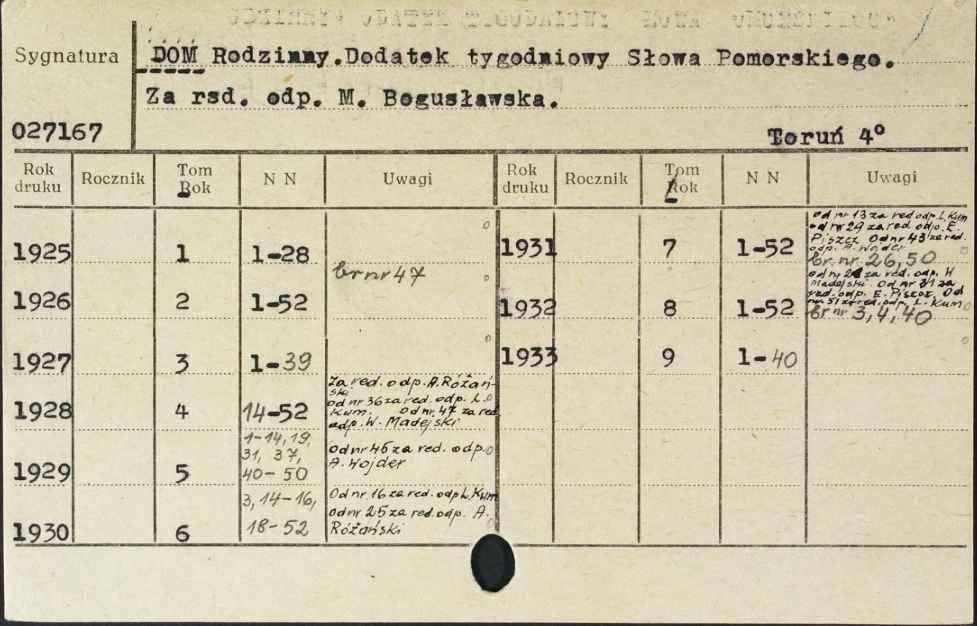 Sygnatura
DOM Rodzinny.Dodatek tygodniowy Słowa Pomorskiego.
Za rsd. odp. M. Bogusławska.
027167
Toruń 4°
Rok druku Rocznik Tom Rok N N Uwagi Rok druku Rocznik Tom Rok N N Uwagi
1925 1 1-28
br nr 47
1926 2 1-52
1927 3 1-39
1928 4 14-52
za red. odp. A. Różań-
ski
od nr 36 za red. odp. L.
Kum. od nr 47 za red
odp. W. Madejski
1929 5
1-14, 19,
31, 37,
40-50
od nr 46 za red. odp.
A. Wojder
1930 6
3, 14-16,
18-52
Od nr 16 za red. odp L. Kum
od nr 25 za red. odp. A.
Różański
1931 7 1-52
od nr 13 za red odp. L. Kum
od nr 29 za red. odp. E.
Piszcz Od nr 43 za red.
odp. A. Wojder
br. nr. 26, 50
1932 8 1-52
od nr 21 za red. odp. W
Madejski Od nr 31 za
red. odp. E. Piszcz. Od
nr 51 za red. odp. L. Kum
br nr 3, 4, 40
1933 9 1-40